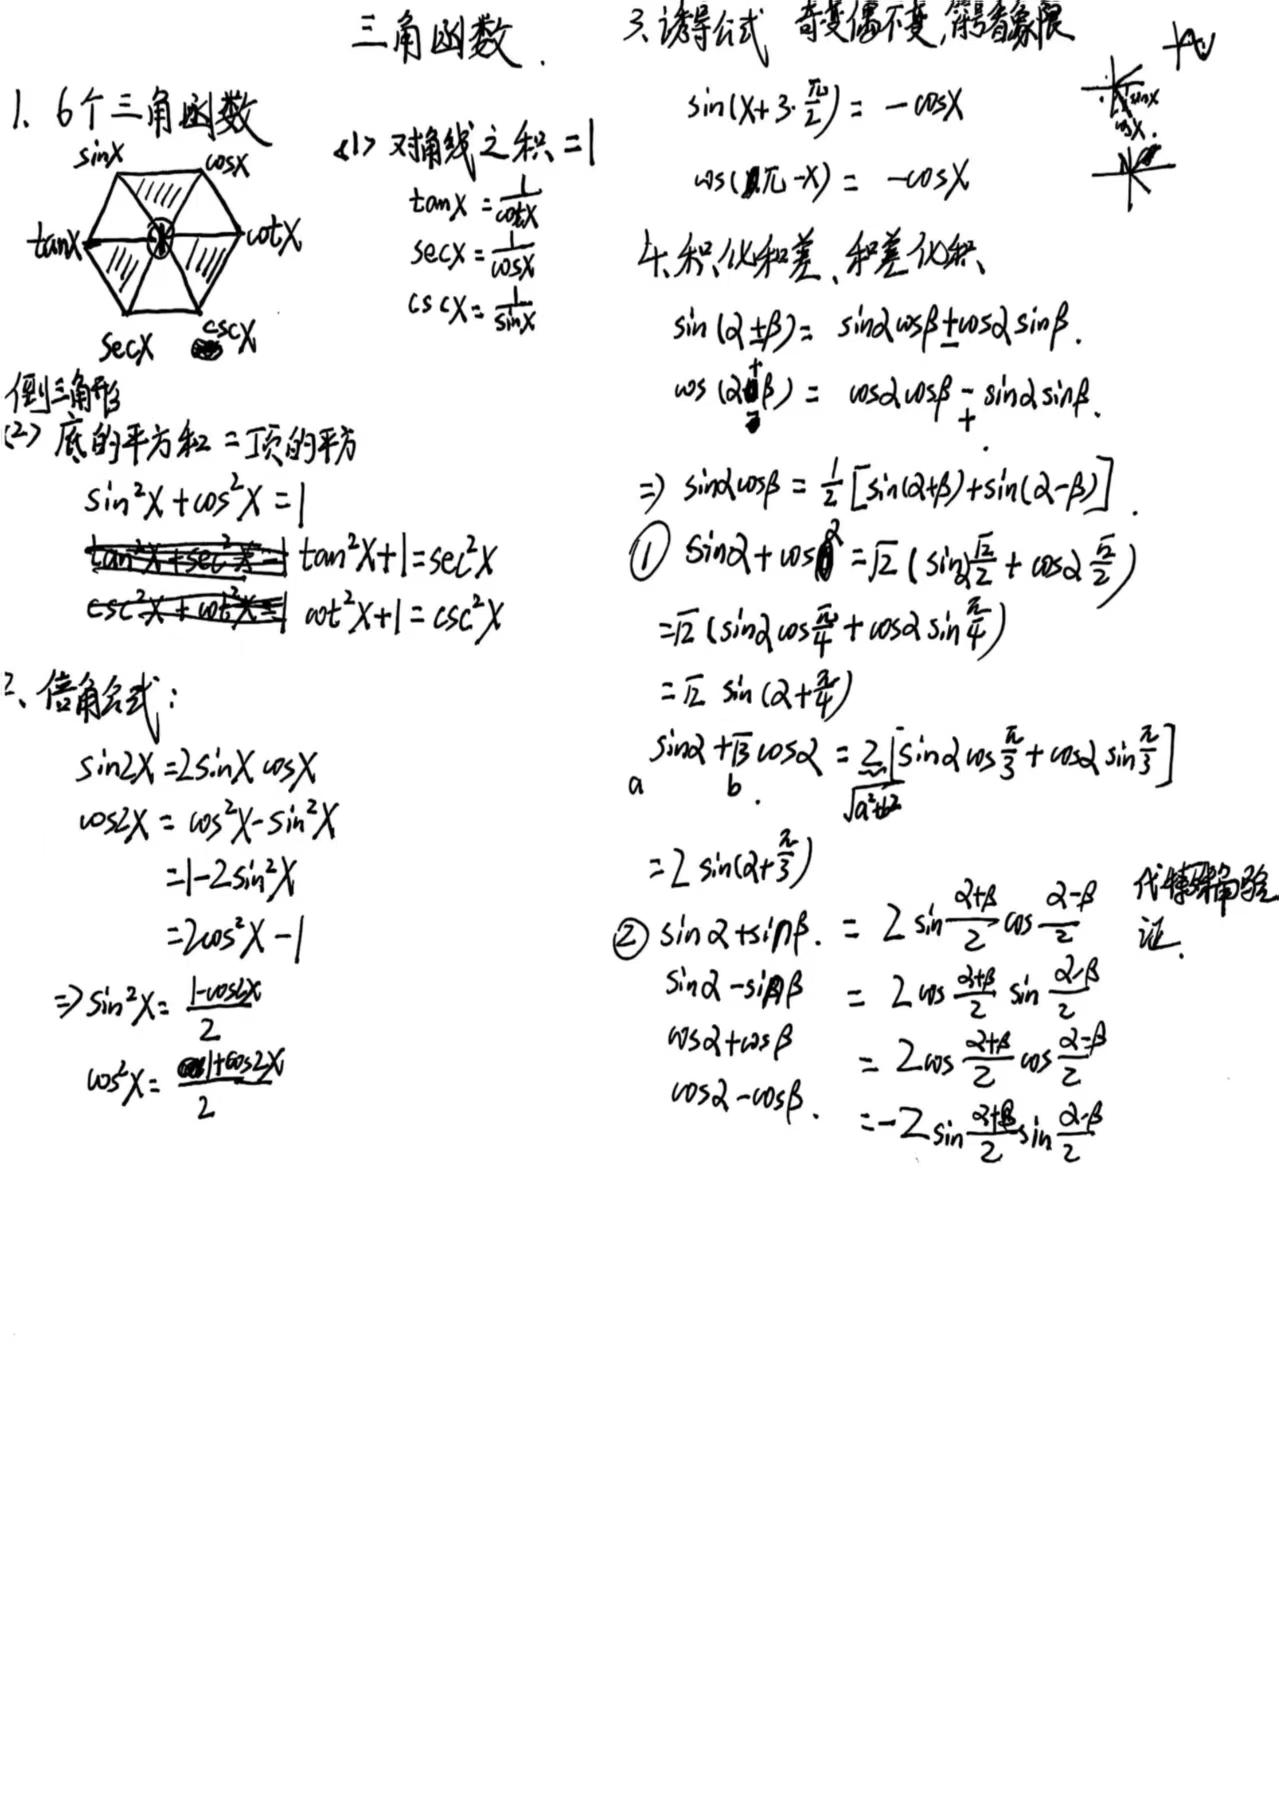 三角函数.
1. 6个三角函数
sinx cosx
tanx 1 cotx
secx cscx
<1> 对角线之积=1
tanx = 1/cotx
secx = 1/cosx
cscx = 1/sinx
倒三角形
<2> 底的平方和=顶的平方
sin²x+cos²x=1
tan²x+1=sec²x
cot²x+1=csc²x
2、倍角公式:
sin2x=2sinx cosx
cos2x = cos²x-sin²x
=1-2sin²x
=2cos²x-1
=> sin²x= (1-cos2x)/2
cos²x= (1+cos2x)/2
3、诱导公式 奇变偶不变,符号看象限
sin(x+3·π/2) = -cosx
sinx
cosx.
cos(π-x) = -cosx
4、积化和差、和差化积
sin(α±β)= sinαcosβ±cosαsinβ.
cos(α±β) = cosαcosβ∓sinαsinβ.
=> sinαcosβ = 1/2[sin(α+β)+sin(α-β)].
① sinα+cosα=√2(sinα√2/2+cosα√2/2)
=√2(sinαcosπ/4+cosαsinπ/4)
=√2 sin(α+π/4)
sinα+√3cosα = 2[sinαcosπ/3+cosαsinπ/3]
a b. √a²+b²
=2sin(α+π/3)
② sinα+sinβ. = 2sin(α+β)/2 cos(α-β)/2
代特殊角验
证.
sinα-sinβ = 2cos(α+β)/2 sin(α-β)/2
cosα+cosβ = 2cos(α+β)/2 cos(α-β)/2
cosα-cosβ. =-2sin(α+β)/2 sin(α-β)/2